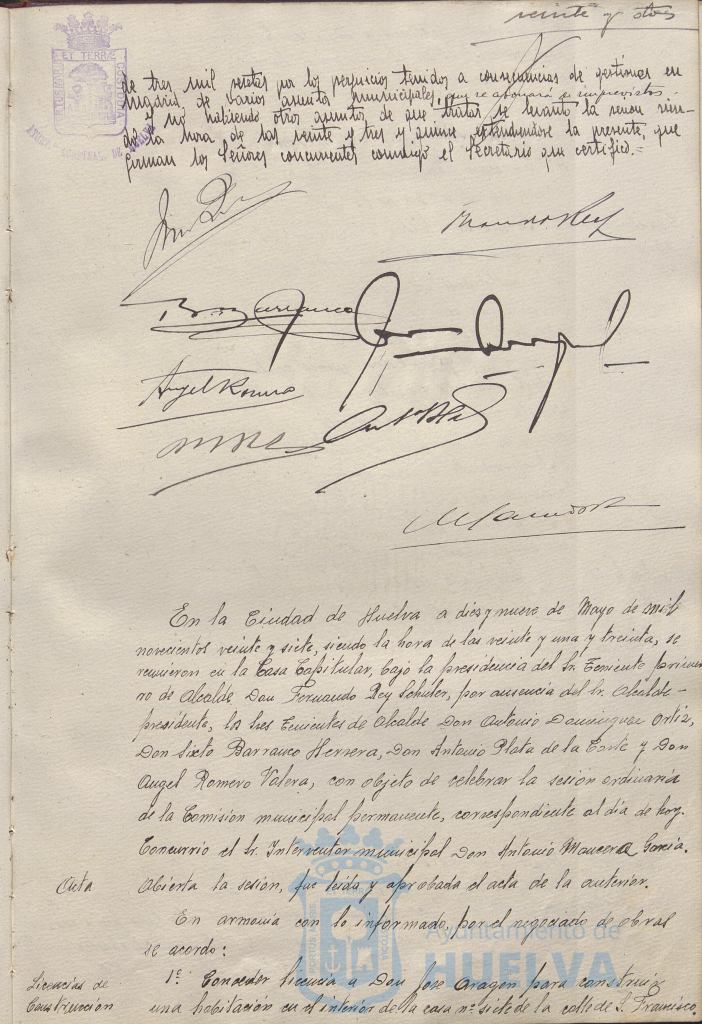 veinte y dos
de tres mil pesetas por los perjuicios tenidos a consecuencias de gestiones en
Madrid de varios asuntos municipales, que se abonará a imprevistos.
Y no habiendo otros asuntos de que tratar se levantó la sesion sien-
do la hora de las veinte y tres y quince, extendiendose la presente, que
firman los Señores concurrentes conmigo el Secretario que certifico.=
Fernando Rey
Barranco
Angel Romero
En la Ciudad de Huelva a diez y nueve de Mayo de mil
novecientos veinte y siete, siendo la hora de las veinte y una y treinta, se
reunieron en la Casa Capitular, bajo la presidencia del Sr. Teniente prime-
ro de Alcalde Don Fernando Rey Schüler, por ausencia del Sr. Alcalde-
presidente, los tres Tenientes de Alcalde Don Antonio Dominguez Ortiz,
Don Sixto Barranco Herrera, Don Antonio Plata de la Corte y Don
Angel Romero Valera, con objeto de celebrar la sesión ordinaria
de la Comision municipal permanente, correspondiente al dia de hoy.
Concurrió el Sr. Interventor municipal Don Antonio Mancera Garcia.
Acta
Abierta la sesión, fue leida y aprobada el acta de la anterior.
En armonia con lo informado, por el negociado de obras
se acordo:
Ayuntamiento de
HUELVA
Licencias de
Construccion
1º. Conceder licencia a Don Jose Aragon para construir
una habitacion en el interior de la casa nº siete de la calle de S. Francisco.